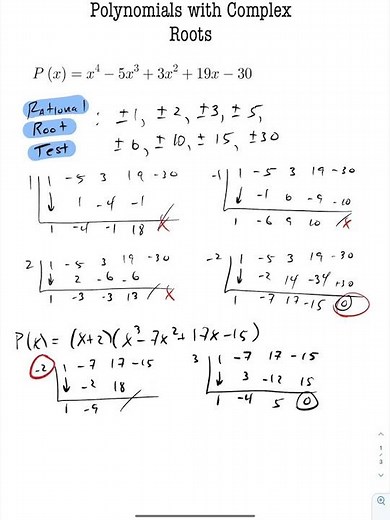 Polynomials with Complex
Roots
P (x) = x⁴ − 5x³ + 3x² + 19x − 30
Rational
Root
Test
: ±1, ±2, ±3, ±5,
±6, ±10, ±15, ±30
1 | 1 -5 3 19 -30
↓ 1 -4 -1
1 -4 -1 18 X
-1 | 1 -5 3 19 -30
↓ -1 6 -9 -10
1 -6 9 10 X
2 | 1 -5 3 19 -30
↓ 2 -6 -6
1 -3 -3 13 X
-2 | 1 -5 3 19 -30
↓ -2 14 -34 +30
1 -7 17 -15 0
P(x) = (x+2)(x³ - 7x² + 17x - 15)
-2 | 1 -7 17 -15
↓ -2 18
1 -9
3 | 1 -7 17 -15
↓ 3 -12 15
1 -4 5 0
1
/
3